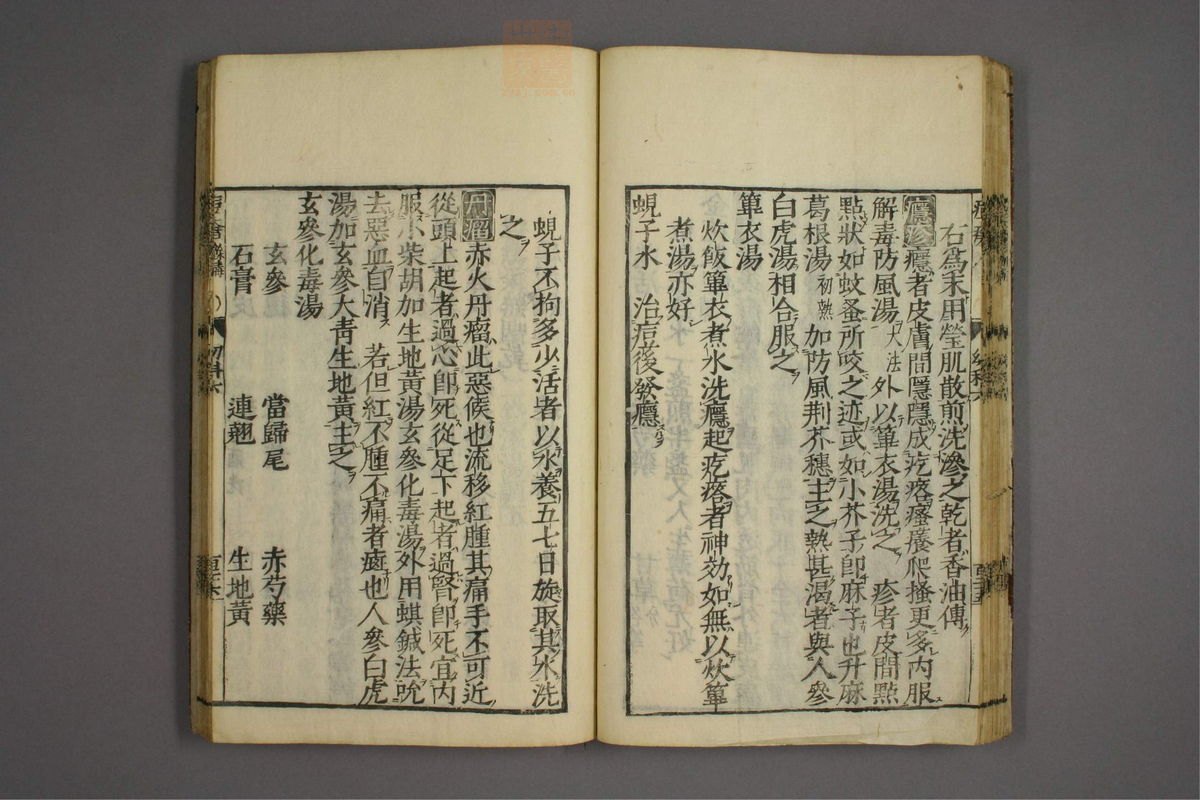 右爲末用瑩肌散煎洗滲之乾者香油傳
癮疹癮者皮膚間隱隱成疙瘩瘙癢爬搔更多内服
解毒防風湯大法外以箄衣湯洗之 疹者皮間點
點狀如蚊蚤所咬之迹或如小芥子卽麻子也升麻
葛根湯初熱加防風荆芥穗主之熱甚渴者與人參
白虎湯相合服之
箄衣湯
炊飯箄衣煮水洗癮起疙瘩者神効如無以炊箄
煮湯亦好
蜆子水 治痘後發癮
蜆子不拘多少活者以水養五七日旋取其水洗
之
丹瘤赤火丹瘤此惡候也流移紅腫其痛手不可近
從頭上起者過心卽死從足下起者過腎卽死宜内
服小柴胡加生地黃湯玄參化毒湯外用蜞鍼法吮
去惡血自消 若但紅不腫不痛者𤻤也人參白虎
湯加玄參大靑生地黃主之
玄參化毒湯
玄參 當歸尾 赤芍藥
石膏 連翹 生地黃
幼科六